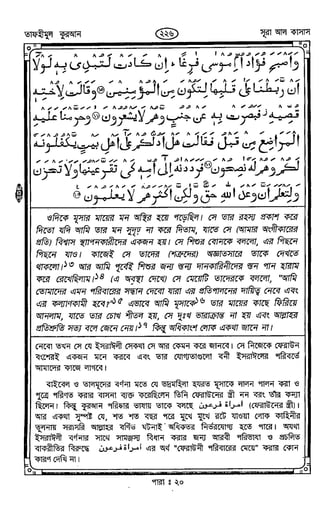 তাফহীমুল কুরআন
২২৬
সূরা আল কাসাস
وَأَصْبَحَ فُؤَادُ أُمِّ مُوسَىٰ فَٰرِغًا ۖ إِنْ كَادَتْ لَتُبْدِي بِهِ لَوْلَا
أَنْ رَبَطْنَا عَلَىٰ قَلْبِهَا لِتَكُونَ مِنَ الْمُؤْمِنِينَ ۝ وَقَالَتْ لِأُخْتِهِ
قُصِّيهِ ۖ فَبَصُرَتْ بِهِ عَنْ جُنُبٍ وَهُمْ لَا يَشْعُرُونَ ۝ وَحَرَّمْنَا عَلَيْهِ
الْمَرَاضِعَ مِنْ قَبْلُ فَقَالَتْ هَلْ أَدُلُّكُمْ عَلَىٰ أَهْلِ بَيْتٍ يَكْفُلُونَهُ
لَكُمْ وَهُمْ لَهُ نَاصِحُونَ ۝ فَرَدَدْنَاهُ إِلَىٰ أُمِّهِ كَيْ تَقَرَّ عَيْنُهَا وَلَا تَحْزَنَ
وَلِتَعْلَمَ أَنَّ وَعْدَ اللَّهِ حَقٌّ وَلَٰكِنَّ أَكْثَرَهُمْ لَا يَعْلَمُونَ ۝
ওদিকে মূসার মায়ের মন অস্থির হয়ে পড়েছিল। সে তার রহস্য প্রকাশ করে
দিতো যদি আমি তার মন সুদৃঢ় না করে দিতাম, যাতে সে (আমার অংগীকারের
প্রতি) বিশ্বাস স্থাপনকারীদের একজন হয়। সে শিশুর বোনকে বললো, এর পিছনে
পিছনে যাও। কাজেই সে তাদের (শত্রুদের) অজ্ঞাতসারে তাকে দেখতে
থাকলো।১৩ আর আমি পূর্বেই শিশুর জন্য স্তন্য দানকারিনীদের স্তন পান হারাম
করে রেখেছিলাম।১৪ (এ অবস্থা দেখে) সে মেয়েটি তাদেরকে বললো, "আমি
তোমাদের এমন পরিবারের সন্ধান দেবো যারা এর প্রতিপালনের দায়িত্ব নেবে এবং
এর কল্যাণকামী হবে?১৫ এভাবে আমি মূসাকে১৬ তার মায়ের কাছে ফিরিয়ে
আনলাম, যাতে তার চোখ শীতল হয়, সে দুঃখ ভারাক্রান্ত না হয় এবং আল্লাহর
প্রতিশ্রুতি সত্য বলে জেনে নেয়।১৭ কিন্তু অধিকাংশ লোক একথা জানে না।
নেবো তখন সে যে ইসরাঈলী সেকথা সে আর কেমন করে জানবে। সে নিজেকে ফেরাউন
বংশেরই একজন মনে করবে এবং তার যোগ্যতাগুলো বনী ইসরাঈলের পরিবর্তে
আমাদের কাজে লাগবে।
বাইবেল ও তালমূদের বর্ণনা মতে যে ভদ্রমহিলা হযরত মূসাকে লালন পালন করা ও
পুত্রে পরিণত করার বাসনা ব্যক্ত করেছিলেন তিনি ফেরাউনের স্ত্রী নন বরং তাঁর কন্যা
ছিলেন। কিন্তু কুরআন পরিষ্কার ভাষায় তাকে বলছে امرأة فرعون (ফেরাউনের স্ত্রী)।
আর একথা সুস্পষ্ট যে, শত শত বছর পরে মুখে মুখে রটে যাওয়া লোক কাহিনীর
তুলনায় সরাসরি আল্লাহর বর্ণিত ঘটনাই অধিকতর নির্ভরযোগ্য হতে পারে। অযথা
ইসরাঈলী বর্ণনার সাথে সামঞ্জস্য বিধান করার জন্য আরবী পরিভাষা ও প্রচলিত
বাকরীতির বিরুদ্ধে امرأة فرعون এর অর্থ "ফেরাউনী পরিবারের মেয়ে" করার কোন
কারণ দেখি না।
পারা : ২০